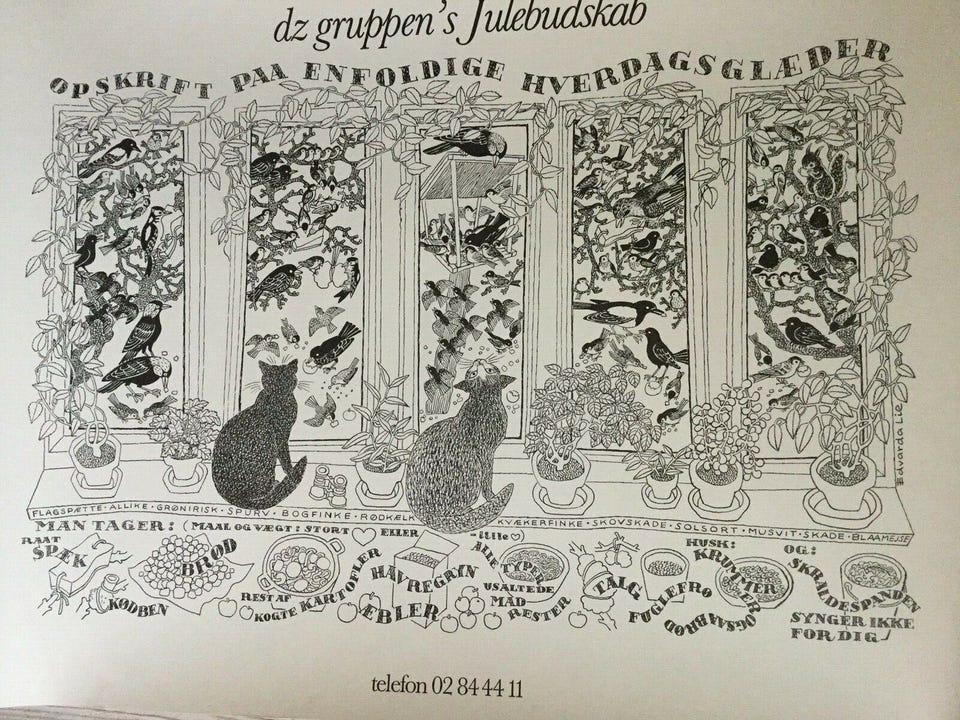 dz gruppen's Julebudskab
OPSKRIFT PAA ENFOLDIGE HVERDAGSGLÆDER
Edvarda Lie
FLAGSPÆTTE · ALLIKE · GRØNIRISK · SPURV · BOGFINKE · RØDKÆLK
KVÆKERFINKE · SKOVSKADE · SOLSORT · MUSVIT · SKADE · BLAAMEJSE
MAN TAGER: (MAAL OG VÆGT: STORT ♡ ELLER - lille ♡)
RAAT
SPÆK
KØDBEN
BRØD
REST AF
KOGTE KARTOFLER
HAVREGRYN
ÆBLER
ALLE TYPER
USALTEDE
MAD
RESTER
TALG
FUGLEFRØ
HUSK:
KRUMMER
OGSAA BRØD
OG:
SKRALDESPANDEN
SYNGER IKKE
FOR DIG!
telefon 02 84 44 11